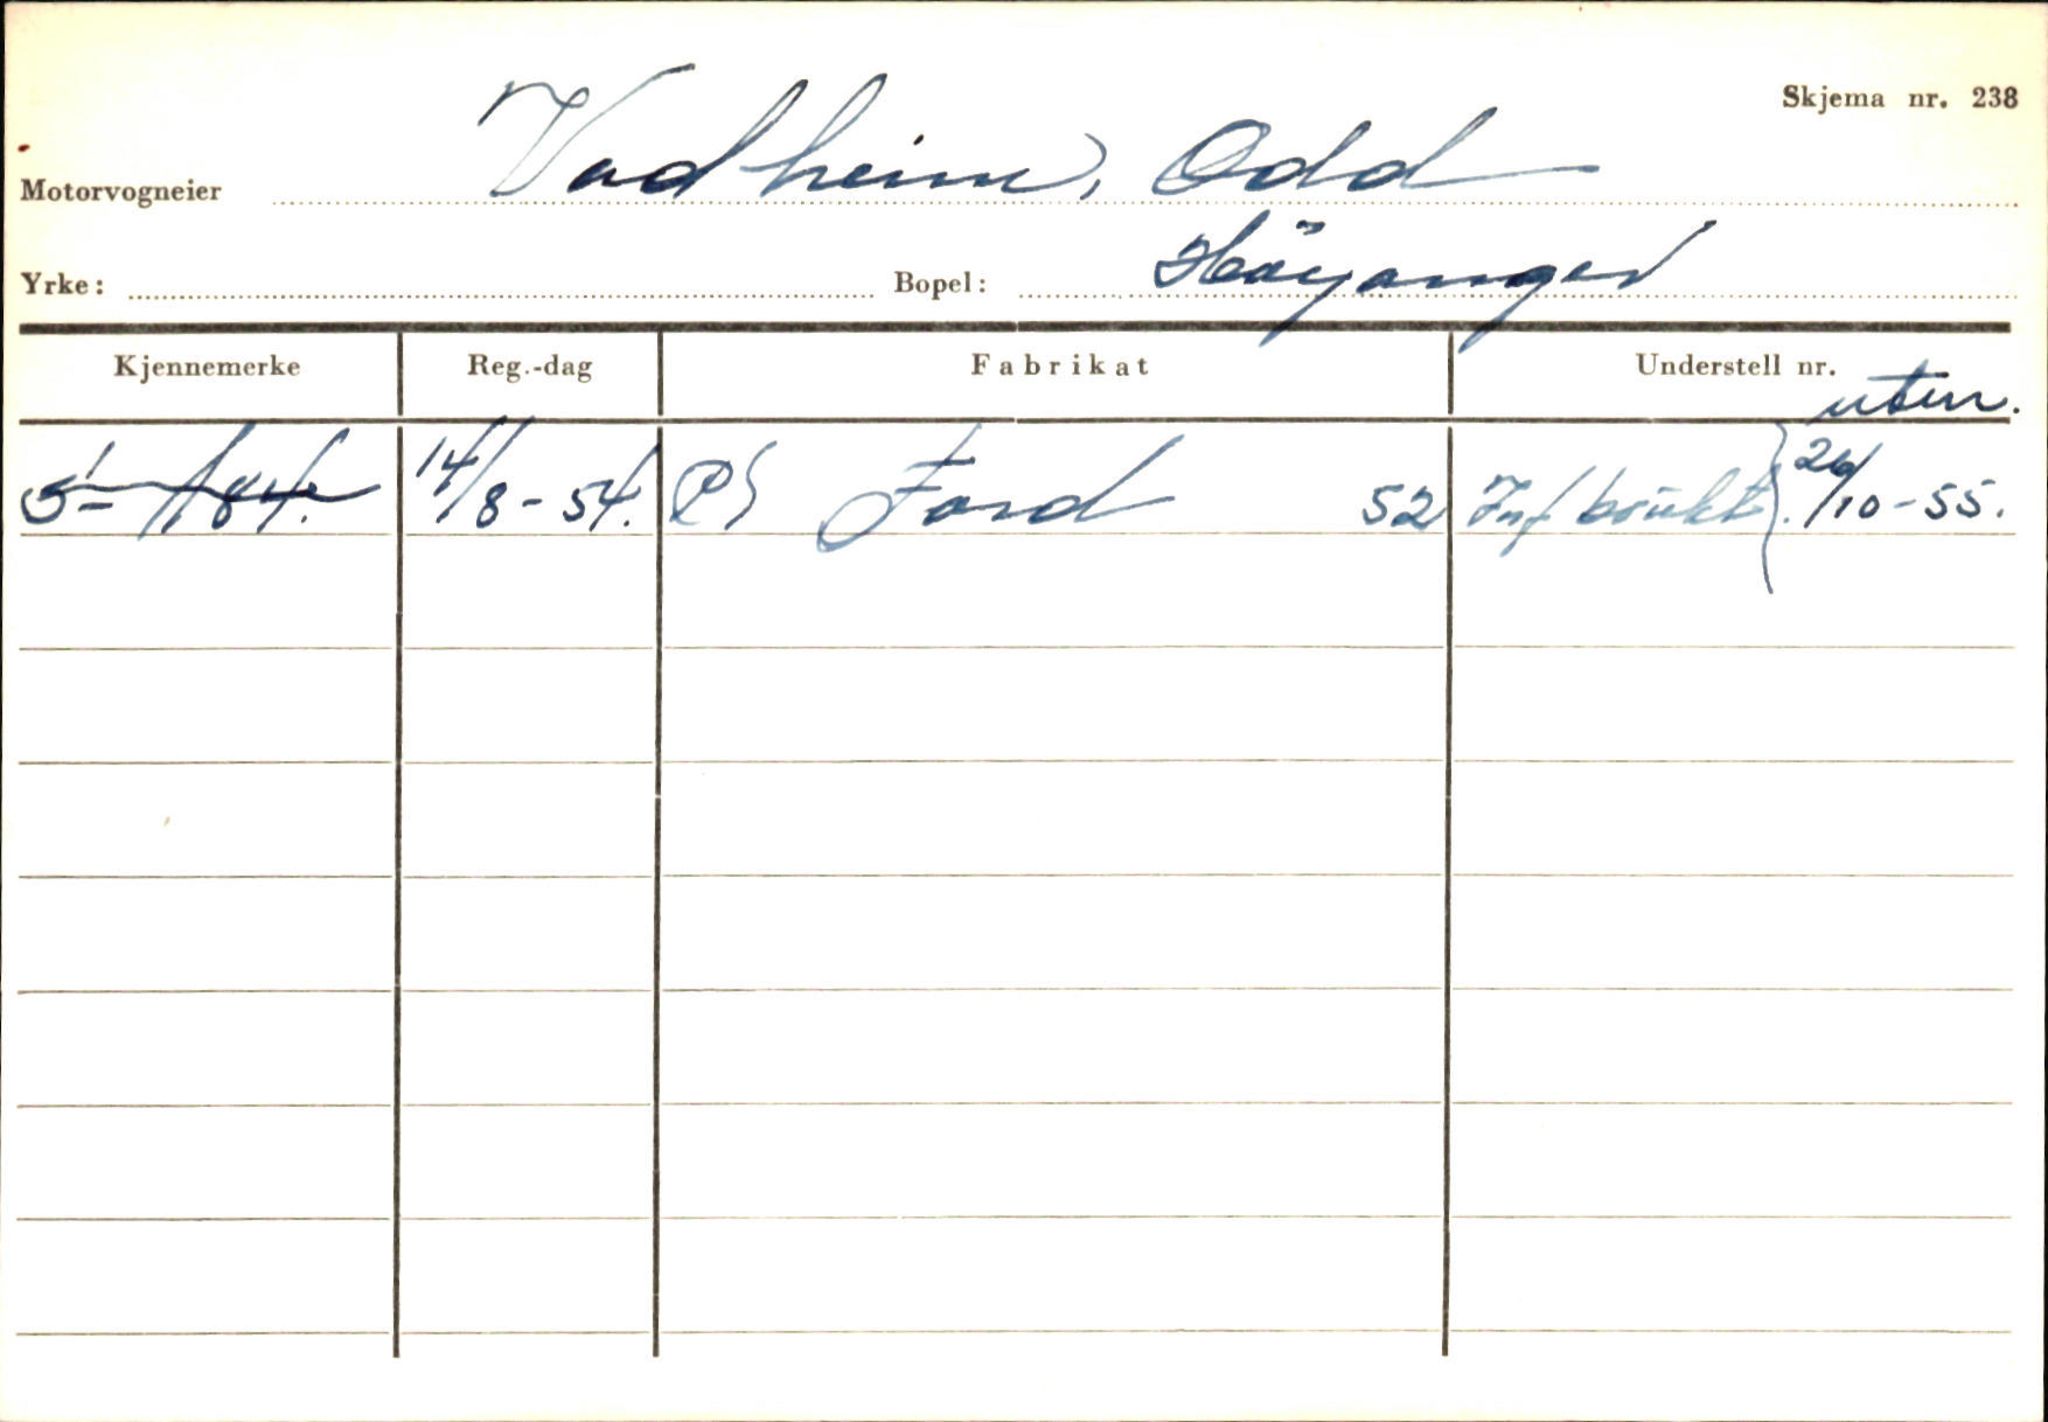 Skjema nr. 238
Motorvogneier Vadheim, Odd
Yrke: Bopel: Höyanger
Kjennemerke Reg.-dag Fabrikat Understell nr.
uten.
14/8-54. P) Ford 52 Inf brukt 26/10-55.